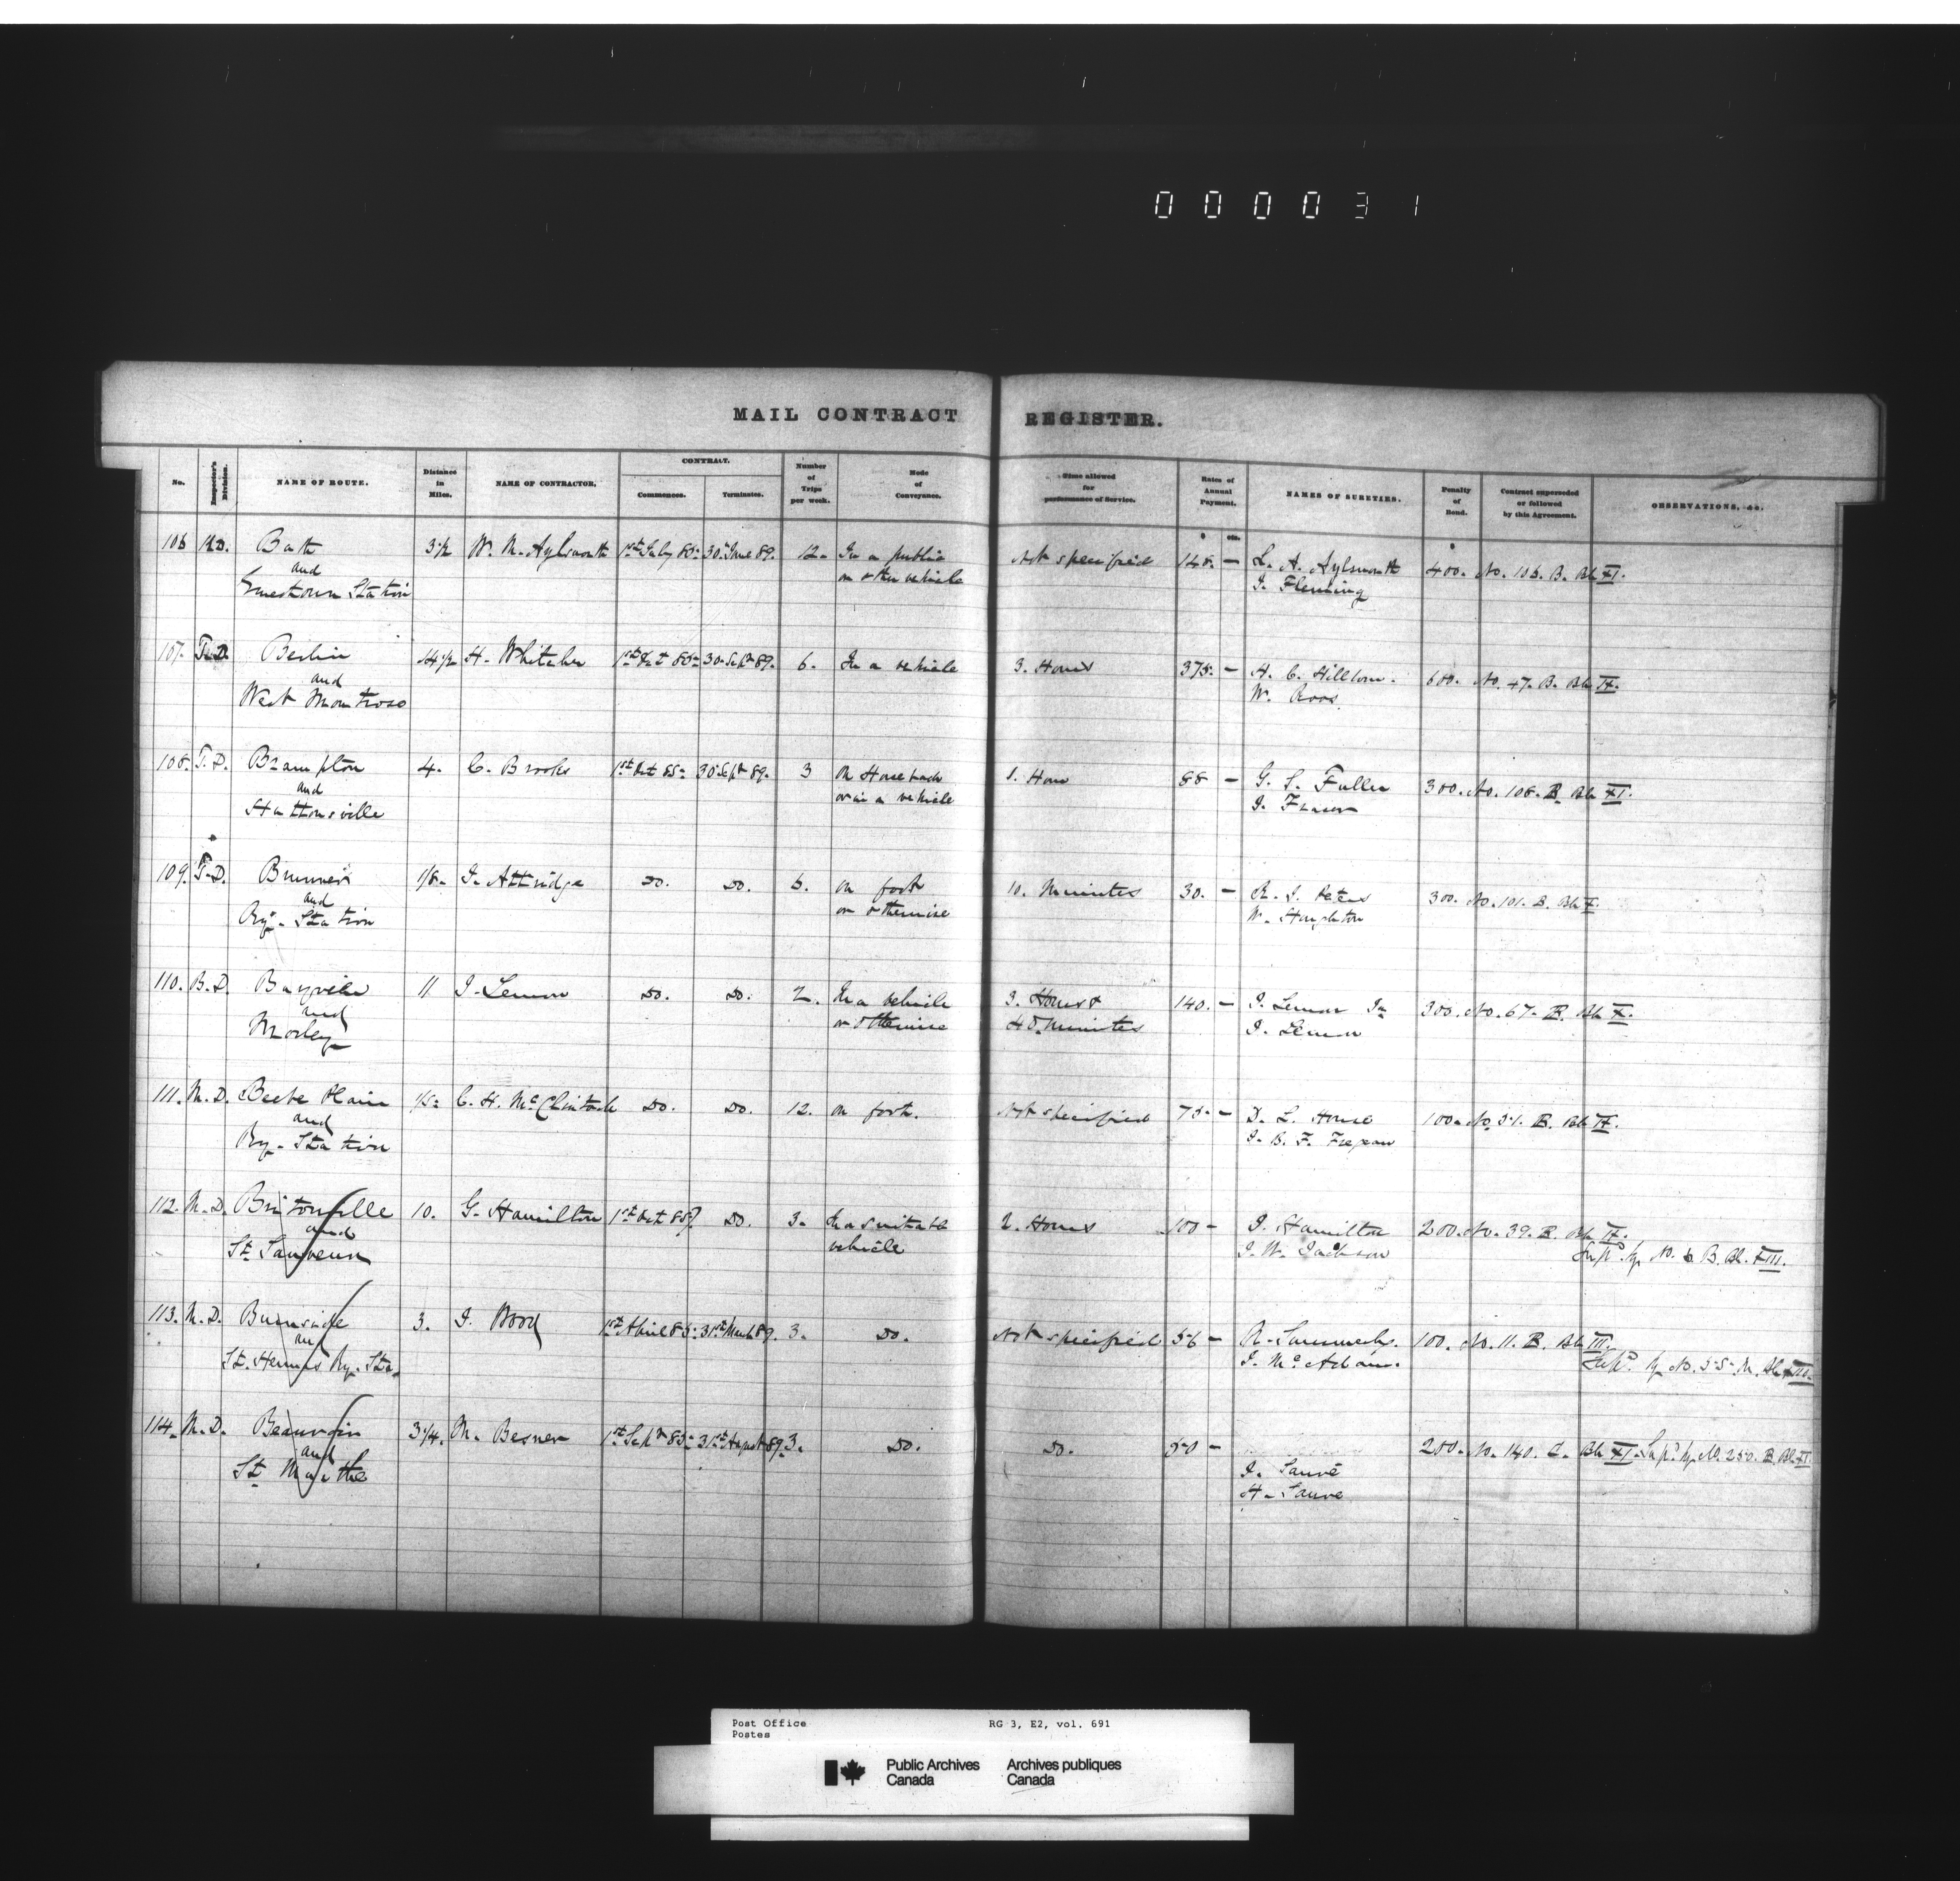 000031
MAIL CONTRACT REGISTER.
No. Inspector's Division. NAME OF ROUTE. Distance in Miles. NAME OF CONTRACTOR. CONTRACT. Commences. Terminates. Number of Trips per week. Mode of Conveyance. Time allowed for performance of Service. Rates of Annual Payment. NAMES OF SURETIES. Penalty of Bond. Contract superseded or followed by this Agreement. OBSERVATIONS, &c.
$ cts. $
106 K.D. Bath 3½ W. N. Aylsworth 1st July 85 30 June 89. 12. In a public Not specified 148. — L. A. Aylsworth 400. No. 106. B. Bk XI.
and or other vehicle J. Fleming
Ernestown Station
107. T.D. Berlin 14½ H. Whitaker 1st Oct 85 30 Sept 89. 6. In a vehicle 3. Hours 375. — H. C. Hillborn. 600. No. 47. B. Bk IX.
and W. Roos
West Montrose
108. T.D. Brampton 4. C. Brooks 1st Oct 85 30 Sept 89. 3 On Horseback 1. Hour 88 — G. S. Fuller 300. No. 108. B. Bk XI.
and or in a vehicle J. Fraser
Huttonsville
109. T.D. Brunner 1/8. J. Attridge Do. Do. 6. on foot 10. Minutes 30. — R. J. Peters 300. No. 101. B. Bk X.
and or otherwise W.
Ry. Station
110. B.D. Baysville 11 J. Lemon Do. Do. 2. In a vehicle 3. Hours & 140. — J. Lemon Jn 300. No. 67. B. Bk X.
and or otherwise 40 Minutes J. Lemon
Morley
111. M.D. Beebe Plain 1/5 C. H. McClintock Do. Do. 12. on foot. Not specified 75. — D. L. House 100. No. 51. B. Bk IX.
and J. B. F.
Ry. Station
112. M.D. Britonville 10. G. Hamilton 1st Oct 85 Do. 3. In a suitable 2. Hours 100 — J. Hamilton 200. No. 39. B. Bk IX.
and vehicle J. W. Jackson Supd. by No. 6 B. Bk. XIII.
St. Sauveur
113. M.D. Burnside 3. J. Wood 1st April 85 31st March 89. 3. Do. Not specified 56 — R. 100. No. 11. B. Bk III.
and J. McAdam. Supd. by No. 55. M. Bk XIII.
St. Hermas Ry. Sta.
114. M.D. Beauvoir 3¼. M. Besner 1st Sept 85 31st August 89 3. Do. Do. 50 — 200. No. 140. Bk XI. Supd. by No. 250. B. Bk XI.
and J. Sauvé
St. Marthe H. Sauvé
Post Office RG 3, E2, vol. 691
Postes
Public Archives Archives publiques
Canada Canada